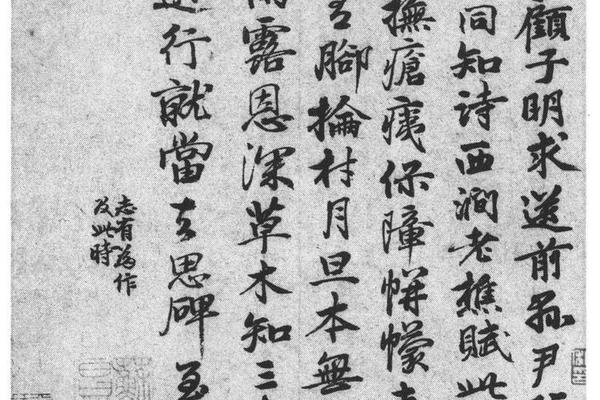 顧子明求送前孫尹
同知詩西澗老樵賦此
撫瘡痍保障帡幪
腳掄材月旦本無
露恩深草木知三
行就當去思碑
志有為作
及此時